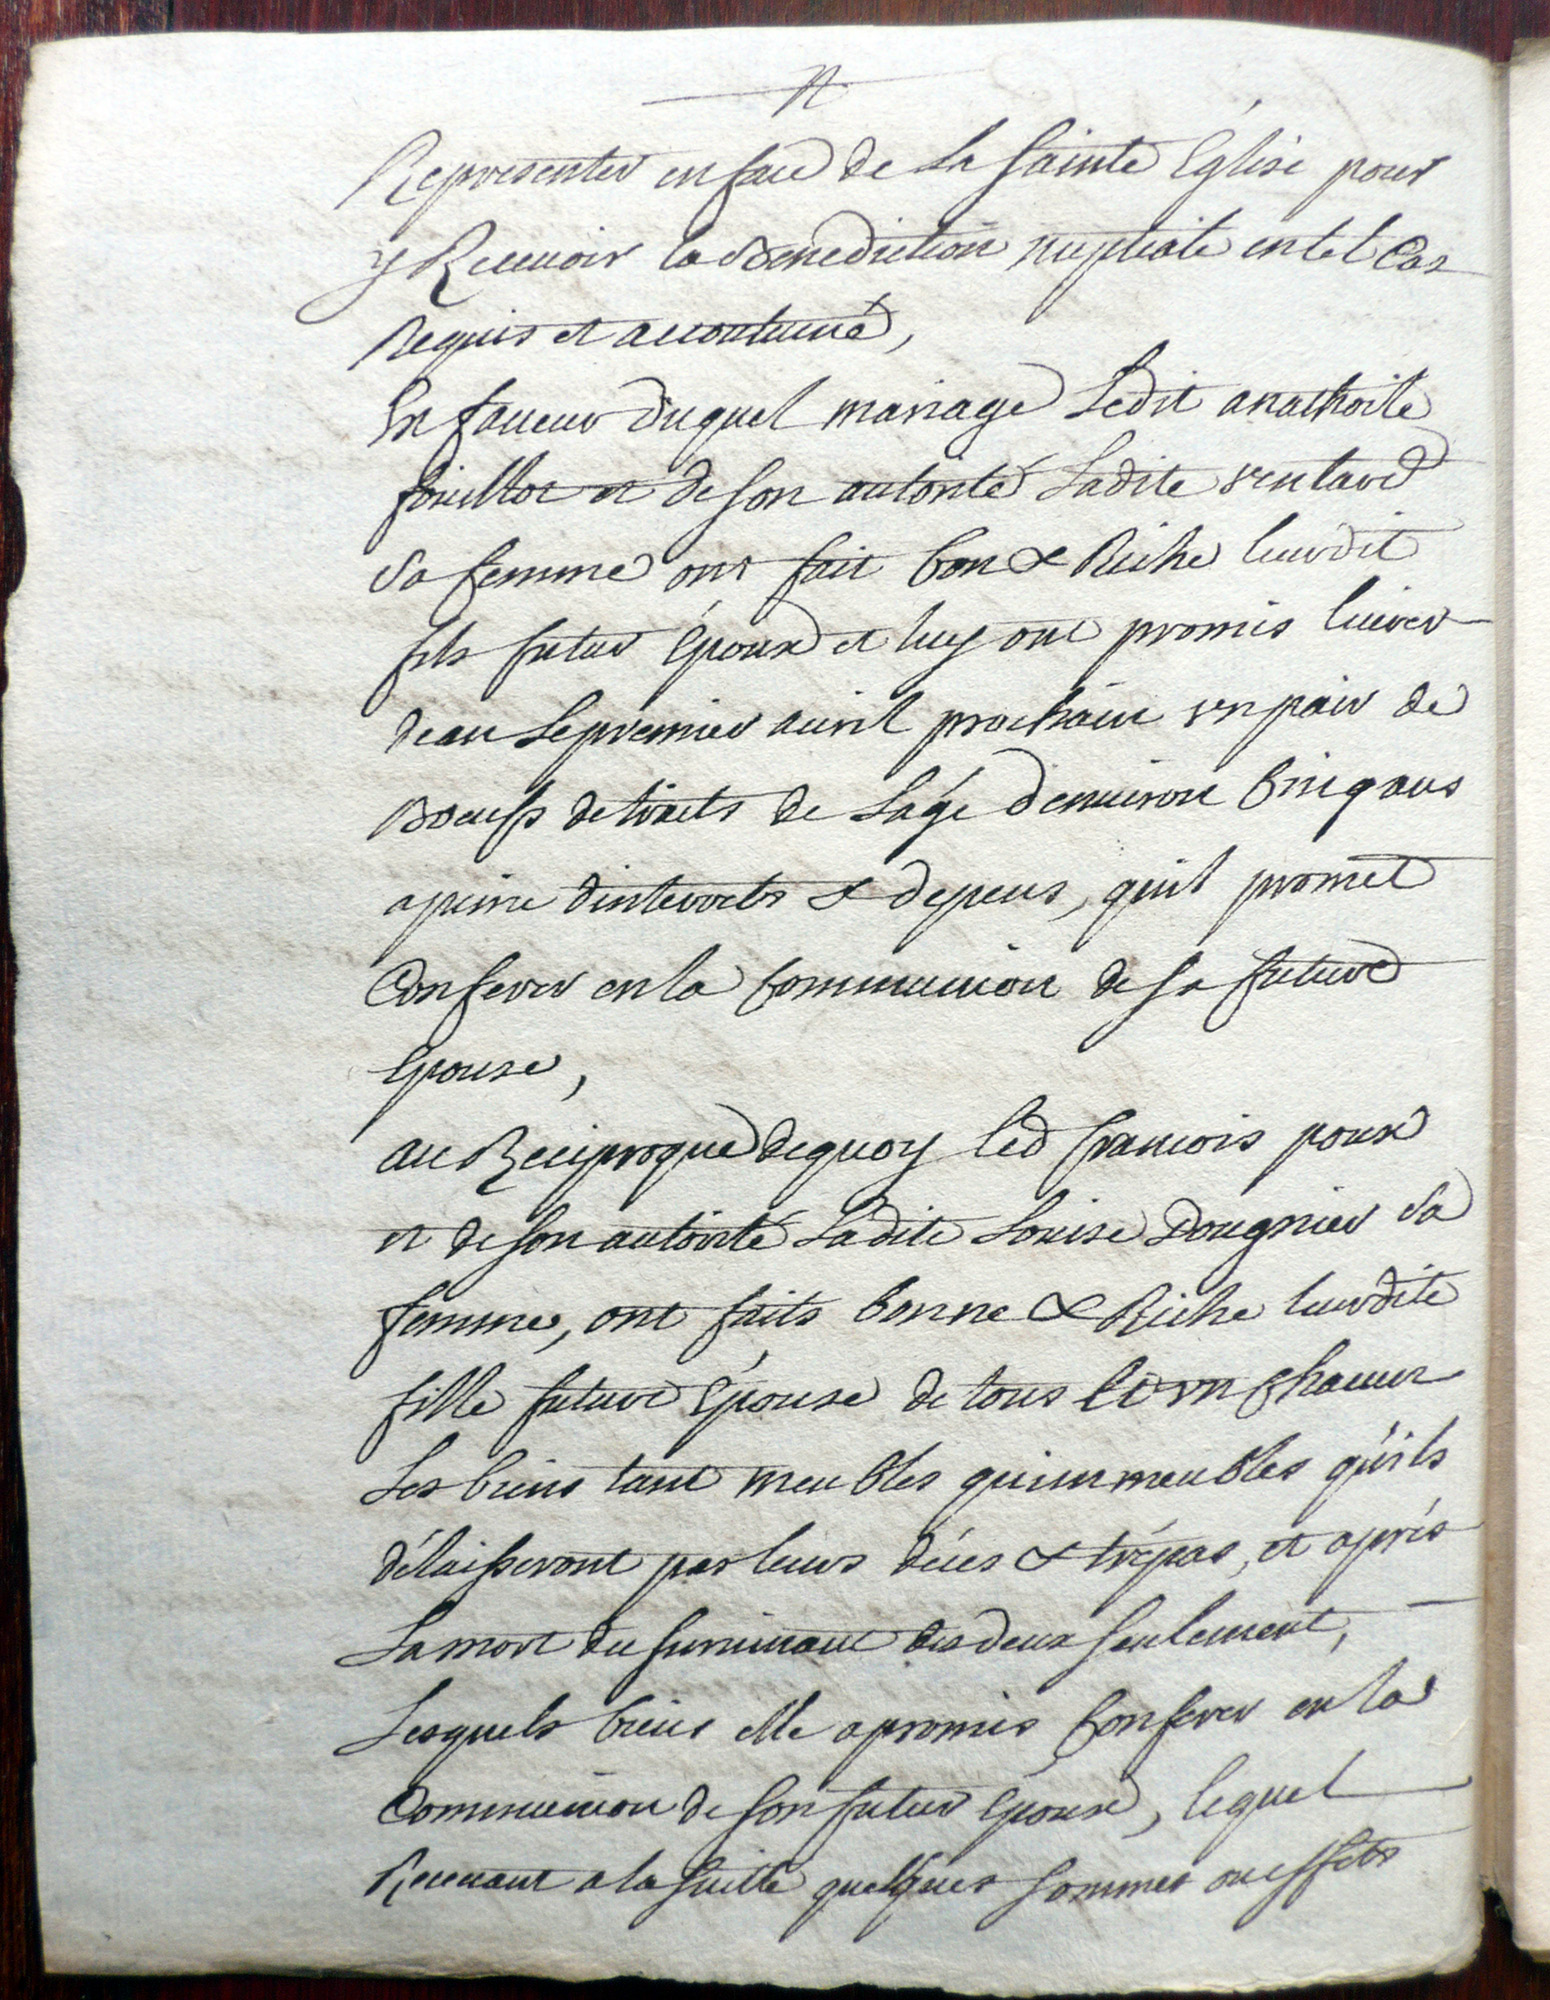 Representer en face de La Sainte Église pour
y Recevoir la Benediction nuptiale en tel Cas
Requis et accoutumé,
En faveur duquel mariage Ledit anathoile
fouillot et de son autorité Ladite ventard
sa femme ont fait bon & Riche leurdit
fils futur Époux et luy ont promis livrer
deau Le premier avril prochain vn pair de
Boeufs de traits de Lagé denviron Cinq ans
a peine dinterrets & depens, quil promet
Conferer en la Communion de sa future
Epouse,
au Reciproque de quoy led francois poux
et de son autorité Ladite Louise Dougnier sa
femme, ont faits bonne & Riche leurdite
fille future Épouse de tous Et vn Chacun
Les biens tant meubles quimmeubles quils
délaisseront par leurs décès & trépas, et aprés
La mort du survivant des deux seulement,
Lesquels biens elle a promis Conferer en la
Communion de son futur Epoux, lequel
Recevant a la suitte quelques sommes ou effets